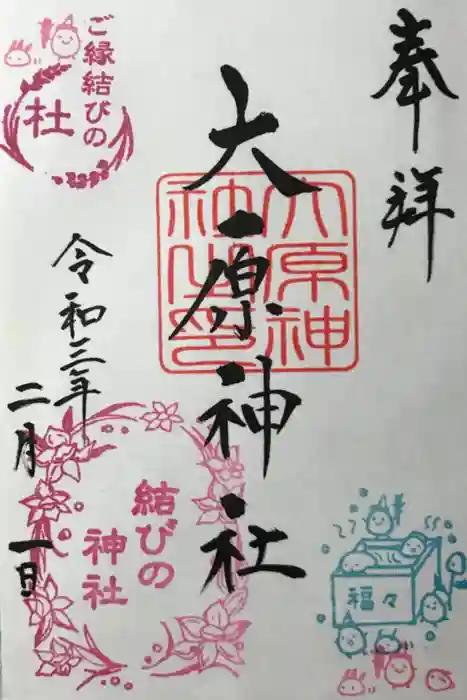 奉拝
大原神社
大原神社之印
令和三年
二月一日
ご縁結びの
杜
結びの
神社
福々